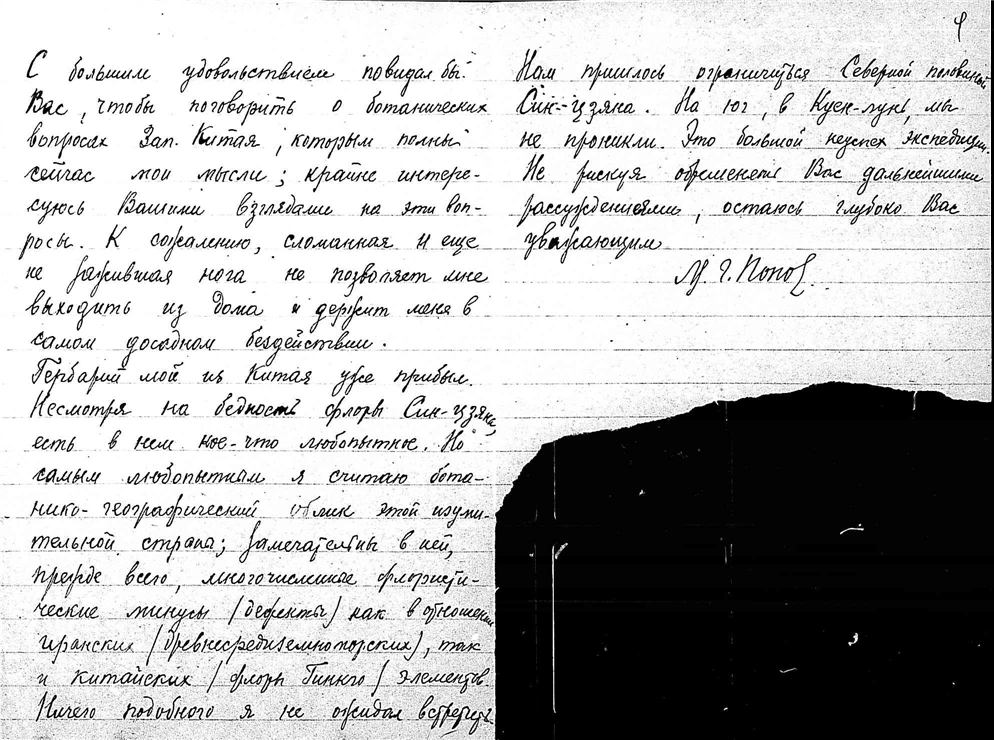 С большим удовольствием повидал бы
Вас, чтобы поговорить о ботанических
вопросах Зап. Китая, которым полны
сейчас мои мысли; крайне интере-
суюсь Вашими взглядами на эти воп-
росы. К сожалению, сломанная и еще
не зажившая нога не позволяет мне
выходить из дома и держит меня в
самом досадном бездействии.
Гербарий мой из Китая уже прибыл.
Несмотря на бедность флоры Син-цзяна,
есть в нем кое-что любопытное. Но
самым любопытным я считаю бота-
нико-географический облик этой изуми-
тельной страны; замечательны в ней,
прежде всего, многочисленные флористи-
ческие минусы (дефекты) как в отношении
иранских (древнесредиземноморских), так
и китайских (флоры Гинкго) элементов.
Ничего подобного я не ожидал встретить.
9
Нам пришлось ограничиться Северной половиной
Син-цзяна. На юг, в Куен-лунь, мы
не проникли. Это большой неуспех экспедиции.
Не рискуя обременять Вас дальнейшими
рассуждениями, остаюсь глубоко Вас
уважающим
М. Г. Попов.